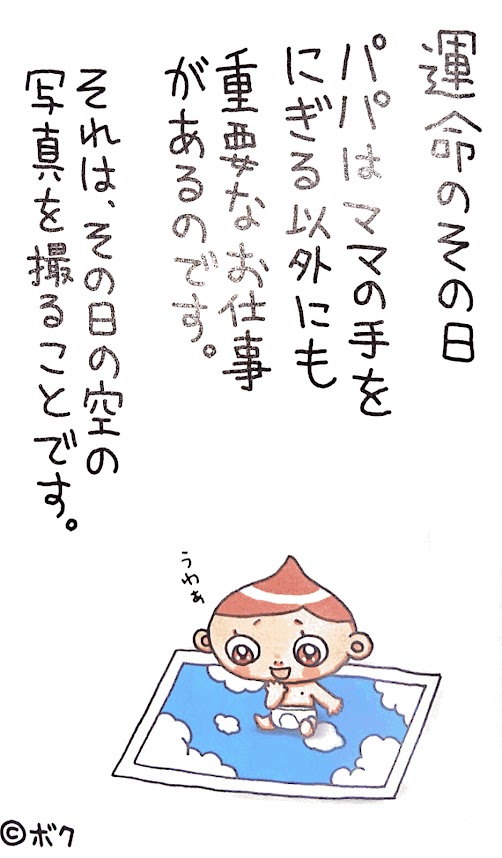 運命のその日
パパはママの手を
にぎる以外にも
重要なお仕事
があるのです。
それは、その日の空の
写真を撮ることです。
うわぁ
©ボク